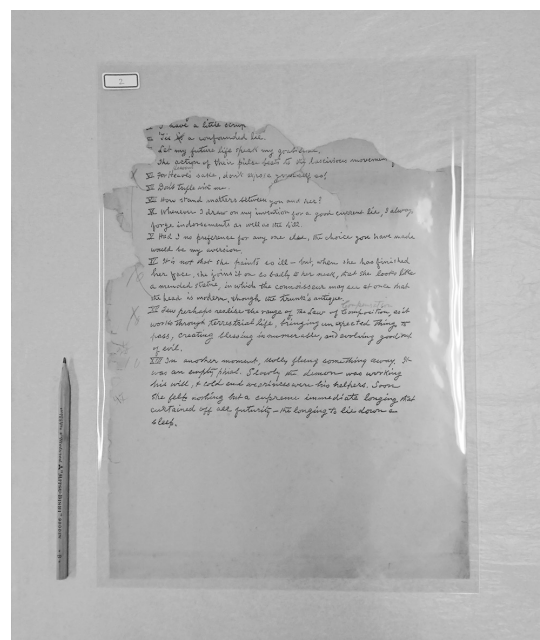 2
I have a little scrap
II Tis a confounded lie.
Let my future life speak my gratitude.
The action of their pulse beats to the luscious movement
VI For Heaven's sake, don't expose yourself so!
VII Don't trifle with me.
VIII How stand matters between you and her?
IX Whenever I draw on my invention for a good current lie, I always
forge indorsements as well as the bill.
X Had I no preference for any one else, the choice you have made
would be my aversion.
XI It is not that she paints so ill – but, when she has finished
her face, she joins it on so badly to her neck, that she looks like
a mended statue, in which the connoisseur may see at once that
the head is modern, though the trunk's antique.
Few perhaps realise the range of the Law of Composition, as it
works through terrestrial life, bringing unexpected things to
pass, creating blessing innumerable, and evolving good out
of evil.
XIII In another moment, Molly flung something away. It
was an empty phial. Slowly the demon was working
his will, & cold and weariness were his helpers. Soon
she felt nothing but a supreme immediate longing that
curtained off all futurity – the longing to lie down &
sleep.